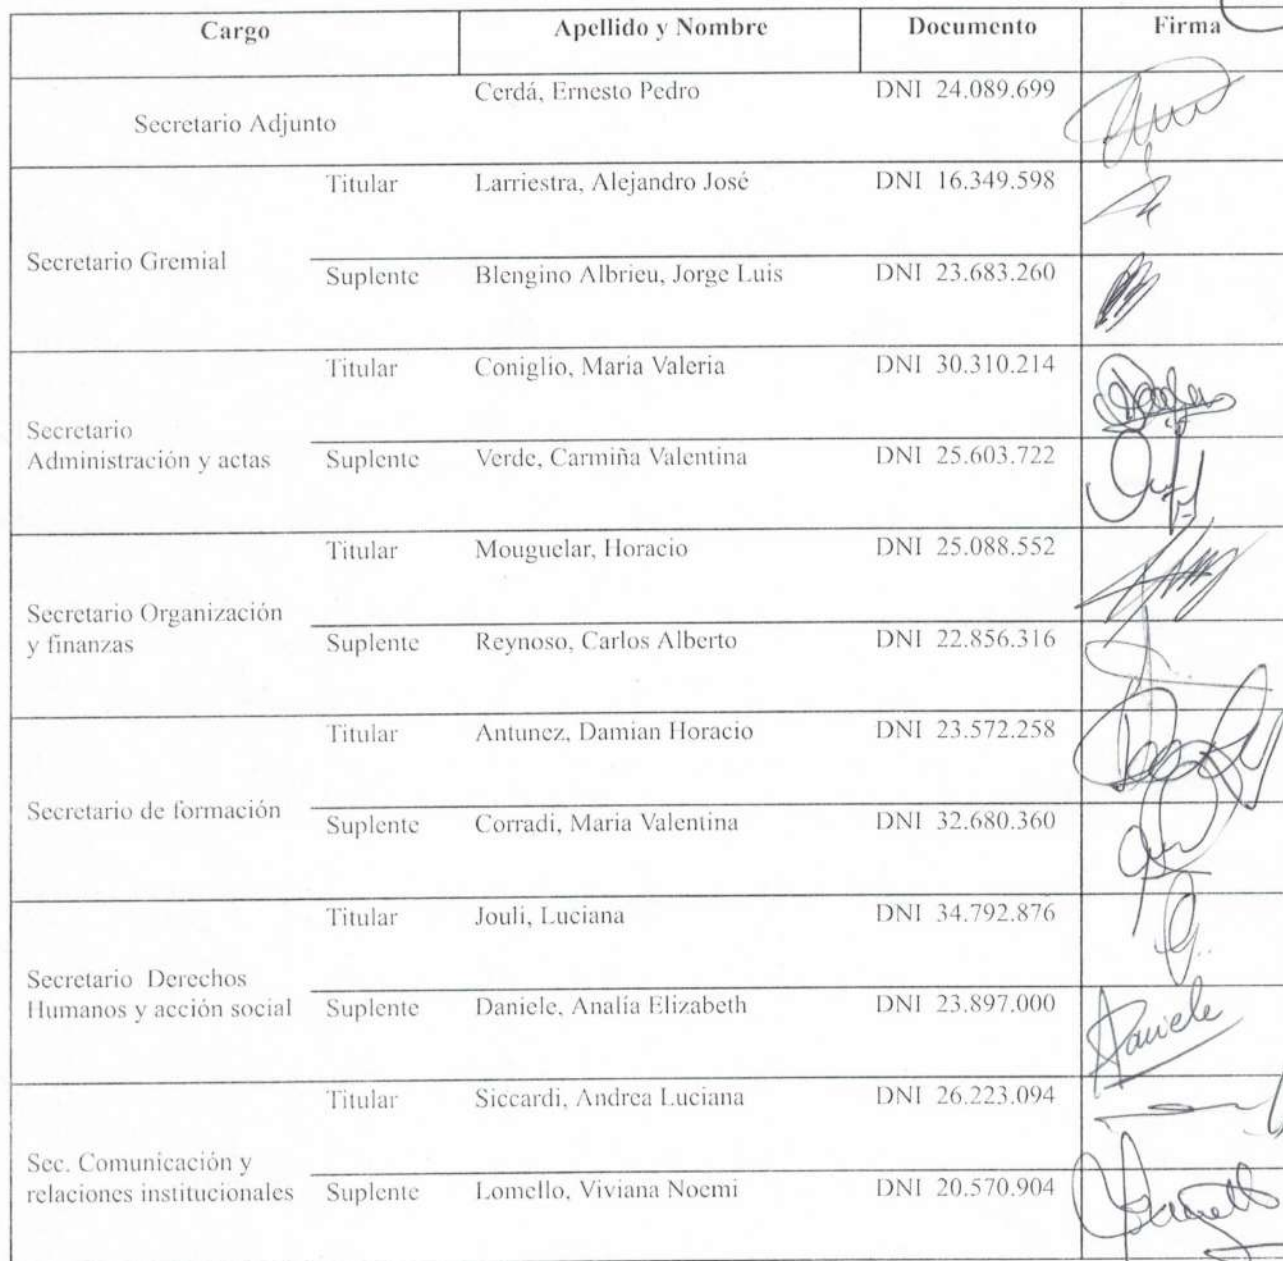 Cargo Apellido y Nombre Documento Firma
Secretario Adjunto Cerdá, Ernesto Pedro DNI 24.089.699
Secretario Gremial
Titular Larriestra, Alejandro José DNI 16.349.598
Suplente Blengino Albrieu, Jorge Luis DNI 23.683.260
Secretario
Administración y actas
Titular Coniglio, Maria Valeria DNI 30.310.214
Suplente Verde, Carmiña Valentina DNI 25.603.722
Secretario Organización
y finanzas
Titular Mouguelar, Horacio DNI 25.088.552
Suplente Reynoso, Carlos Alberto DNI 22.856.316
Secretario de formación
Titular Antunez, Damian Horacio DNI 23.572.258
Suplente Corradi, Maria Valentina DNI 32.680.360
Secretario Derechos
Humanos y acción social
Titular Jouli, Luciana DNI 34.792.876
Suplente Daniele, Analía Elizabeth DNI 23.897.000
Daniele
Sec. Comunicación y
relaciones institucionales
Titular Siccardi, Andrea Luciana DNI 26.223.094
Suplente Lomello, Viviana Noemi DNI 20.570.904